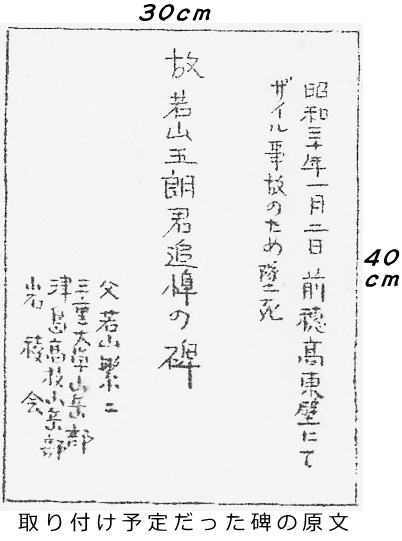 30cm
昭和三十年一月二日 前穂高東壁にて
ザイル事故のため墜死
故 若山五朗君追悼の碑
父 若山繁二
三重大学山岳部
津島高校山岳部
岩稜会
40cm
取り付け予定だった碑の原文